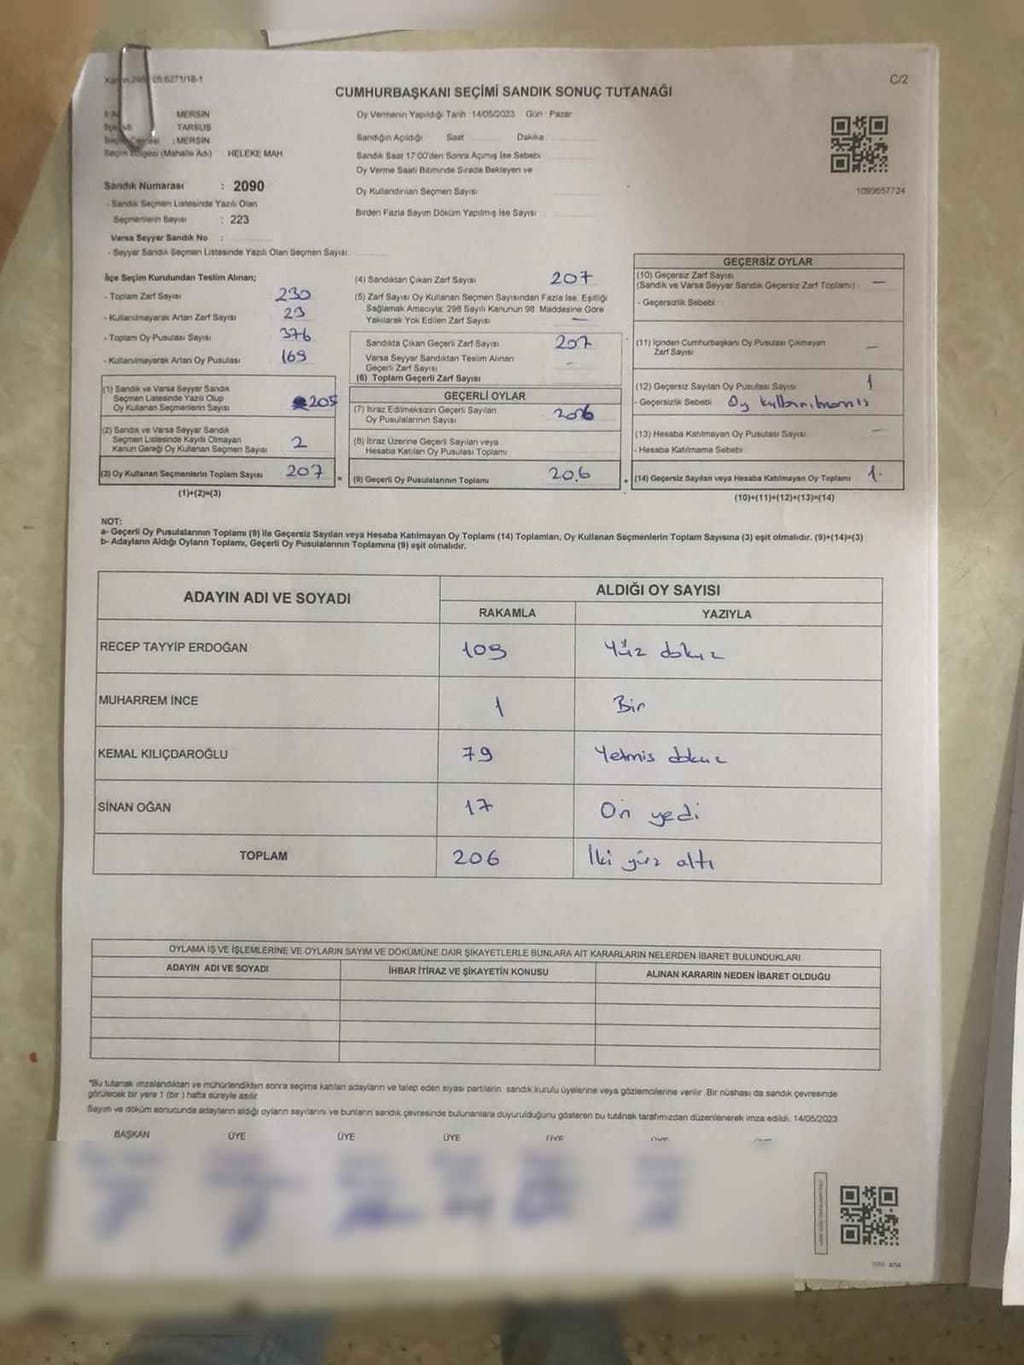 C/2
CUMHURBAŞKANI SEÇİMİ SANDIK SONUÇ TUTANAĞI
MERSİN
TARSUS
: MERSİN
Seçim Bölgesi (Mahalle Adı) HELEKE MAH
Oy Vermenin Yapıldığı Tarih 14/05/2023 Gün Pazar
Sandığın Açıldığı Saat Dakika
Sandık Saat 17:00'den Sonra Açımış İse Sebebi
Oy Verme Saati Bitiminde Sırada Bekleyen ve
Oy Kullandırılan Seçmen Sayısı
Birden Fazla Sayım Döküm Yapılmış İse Sayısı
1093657724
Sandık Numarası : 2090
- Sandık Seçmen Listesinde Yazılı Olan
Seçmenlerin Sayısı : 223
Varsa Seyyar Sandık No :
- Seyyar Sandık Seçmen Listesinde Yazılı Olan Seçmen Sayısı:
İlçe Seçim Kurulundan Teslim Alınan;
- Toplam Zarf Sayısı 230
- Kullanılmayarak Artan Zarf Sayısı 23
- Toplam Oy Pusulası Sayısı 376
- Kullanılmayarak Artan Oy Pusulası 169
(1) Sandık ve Varsa Seyyar Sandık
Seçmen Listesinde Yazılı Olup
Oy Kullanan Seçmenlerin Sayısı 205
(2) Sandık ve Varsa Seyyar Sandık
Seçmen Listesinde Kayıtlı Olmayan
Kanun Gereği Oy Kullanan Seçmen Sayısı 2
(3) Oy Kullanan Seçmenlerin Toplam Sayısı 207
(1)+(2)=(3)
(4) Sandıktan Çıkan Zarf Sayısı 207
(5) Zarf Sayısı Oy Kullanan Seçmen Sayısından Fazla İse, Eşitliği
Sağlamak Amacıyla; 298 Sayılı Kanunun 98. Maddesine Göre
Yakılarak Yok Edilen Zarf Sayısı –
Sandıkta Çıkan Geçerli Zarf Sayısı 207
Varsa Seyyar Sandıktan Teslim Alınan
Geçerli Zarf Sayısı -
(6) Toplam Geçerli Zarf Sayısı
GEÇERLİ OYLAR
(7) İtiraz Edilmeksizin Geçerli Sayılan
Oy Pusulalarının Sayısı 206
(8) İtiraz Üzerine Geçerli Sayılan veya
Hesaba Katılan Oy Pusulası Toplamı
= (9) Geçerli Oy Pusulalarının Toplamı 206
GEÇERSİZ OYLAR
(10) Geçersiz Zarf Sayısı
(Sandık ve Varsa Seyyar Sandık Geçersiz Zarf Toplamı) –
- Geçersizlik Sebebi
(11) İçinden Cumhurbaşkanı Oy Pusulası Çıkmayan
Zarf Sayısı –
(12) Geçersiz Sayılan Oy Pusulası Sayısı 1
- Geçersizlik Sebebi Oy kullanılmamıs
(13) Hesaba Katılmayan Oy Pusulası Sayısı –
- Hesaba Katılmama Sebebi
+ (14) Geçersiz Sayılan veya Hesaba Katılmayan Oy Toplamı 1-
(10)+(11)+(12)+(13)=(14)
NOT:
a- Geçerli Oy Pusulalarının Toplamı (9) ile Geçersiz Sayılan veya Hesaba Katılmayan Oy Toplamı (14) Toplamları, Oy Kullanan Seçmenlerin Toplam Sayısına (3) eşit olmalıdır. (9)+(14)=(3)
b- Adayların Aldığı Oyların Toplamı, Geçerli Oy Pusulalarının Toplamına (9) eşit olmalıdır.
ADAYIN ADI VE SOYADI ALDIĞI OY SAYISI
RAKAMLA YAZIYLA
RECEP TAYYİP ERDOĞAN 109 Yüz dokuz
MUHARREM İNCE 1 Bir
KEMAL KILIÇDAROĞLU 79 Yetmis dokuz
SİNAN OĞAN 17 On yedi
TOPLAM 206 İki yüz altı
OYLAMA İŞ VE İŞLEMLERİNE VE OYLARIN SAYIM VE DÖKÜMÜNE DAİR ŞİKAYETLERLE BUNLARA AİT KARARLARIN NELERDEN İBARET BULUNDUKLARI
ADAYIN ADI VE SOYADI İHBAR İTİRAZ VE ŞİKAYETİN KONUSU ALINAN KARARIN NEDEN İBARET OLDUĞU
*Bu tutanak imzalandıktan ve mühürlendikten sonra seçime katılan adayların ve talep eden siyasi partilerin sandık kurulu üyelerine veya gözlemcilerine verilir. Bir nüshası da sandık çevresinde
görülecek bir yere 1 (bir) hafta süreyle asılır.
Sayım ve döküm sonucunda adayların aldığı oyların sayılarını ve bunların sandık çevresinde bulunanlara duyurulduğunu gösteren bu tutanak tarafımızdan düzenlenerek imza edildi. 14/05/2023
BAŞKAN ÜYE ÜYE ÜYE ÜYE ÜYE